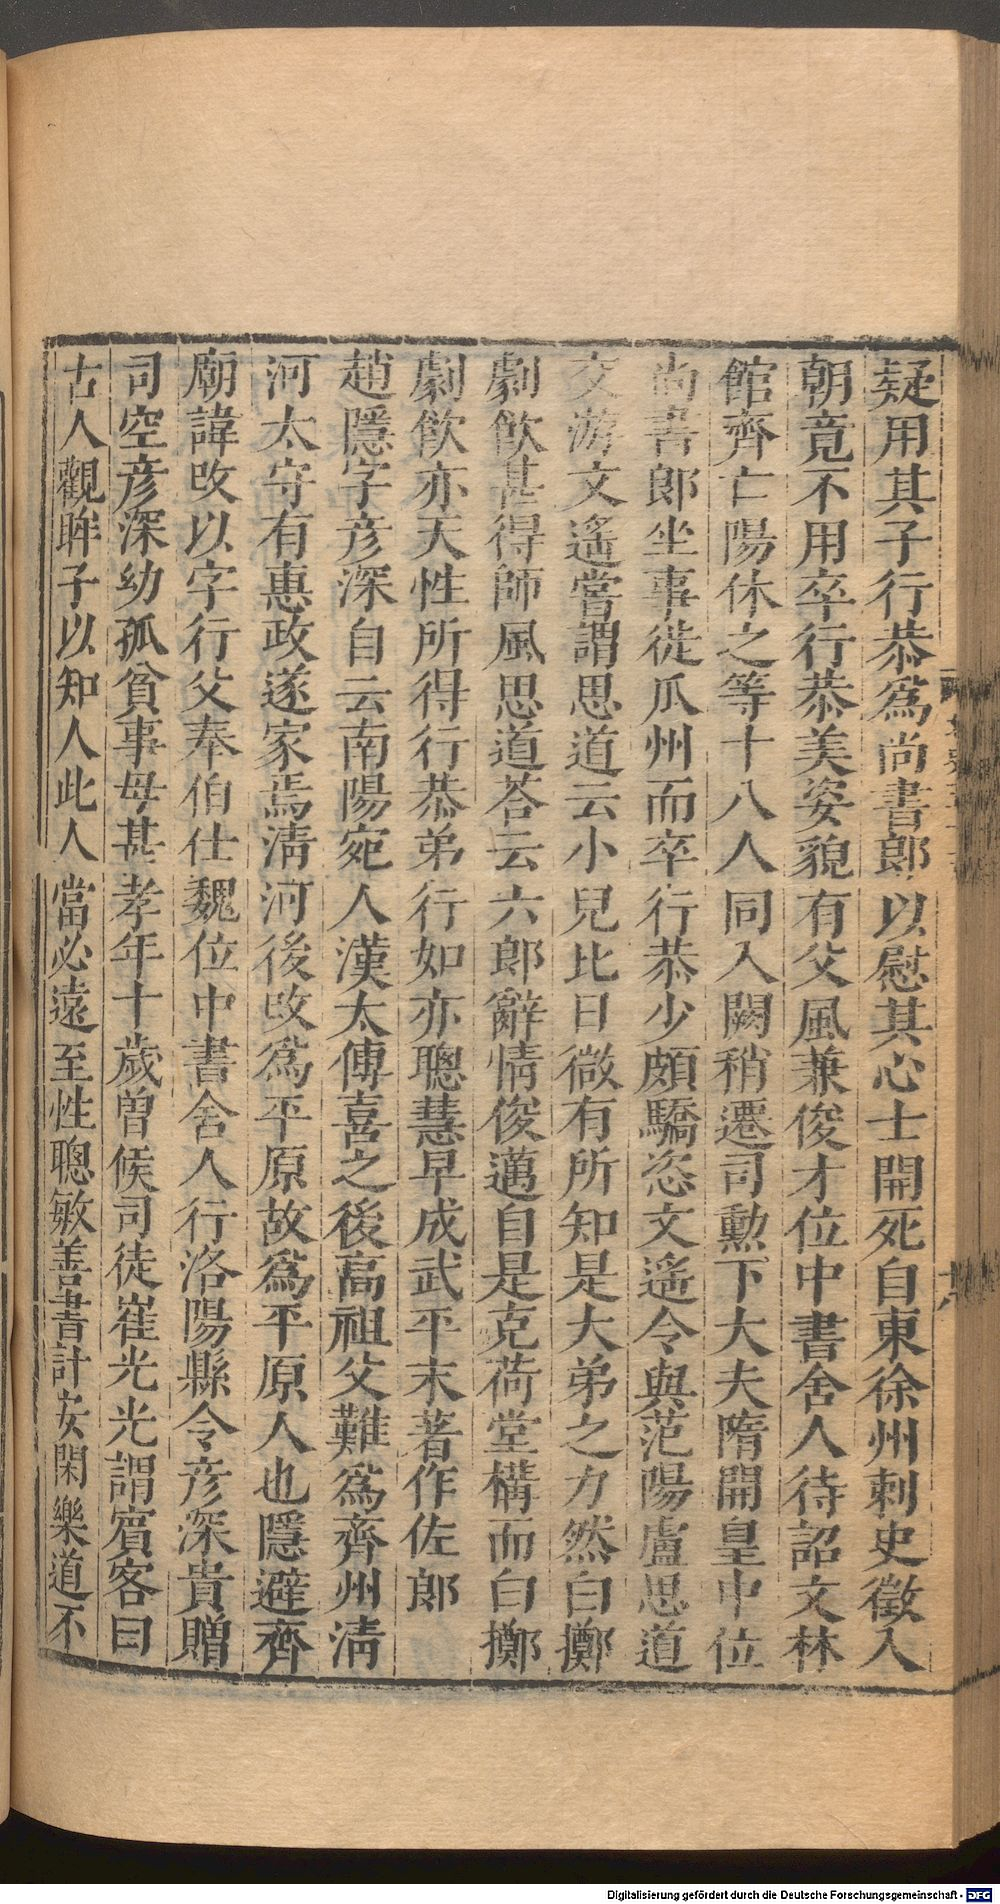 疑用其子行恭爲尚書郎以慰其心士開死自東徐州刺史徵入
朝竟不用卒行恭美姿貌有父風兼俊才位中書舍人待詔文林
館齊亡陽休之等十八人同入關稍遷司勲下大夫隋開皇中位
尚書郎坐事徙瓜州而卒行恭少頗驕恣文遙令與范陽盧思道
交游文遙嘗謂思道云小兒比日微有所知是大弟之力然白擲
劇飲甚得師風思道荅云六郎辭情俊邁自是克荷堂構而白擲
劇飲亦天性所得行恭弟行如亦聰慧早成武平末著作佐郎
趙隱字彦深自云南陽宛人漢太傅喜之後高祖父難爲齊州清
河太守有惠政遂家焉清河後改爲平原故爲平原人也隱避齊
廟諱改以字行父奉伯仕魏位中書舍人行洛陽縣令彦深貴贈
司空彦深幼孤貧事母甚孝年十歲曽候司徒崔光光謂賓客曰
古人觀眸子以知人此人當必遠至性聰敏善書計安閑樂道不
Digitalisierung gefördert durch die Deutsche Forschungsgemeinschaft - DFG